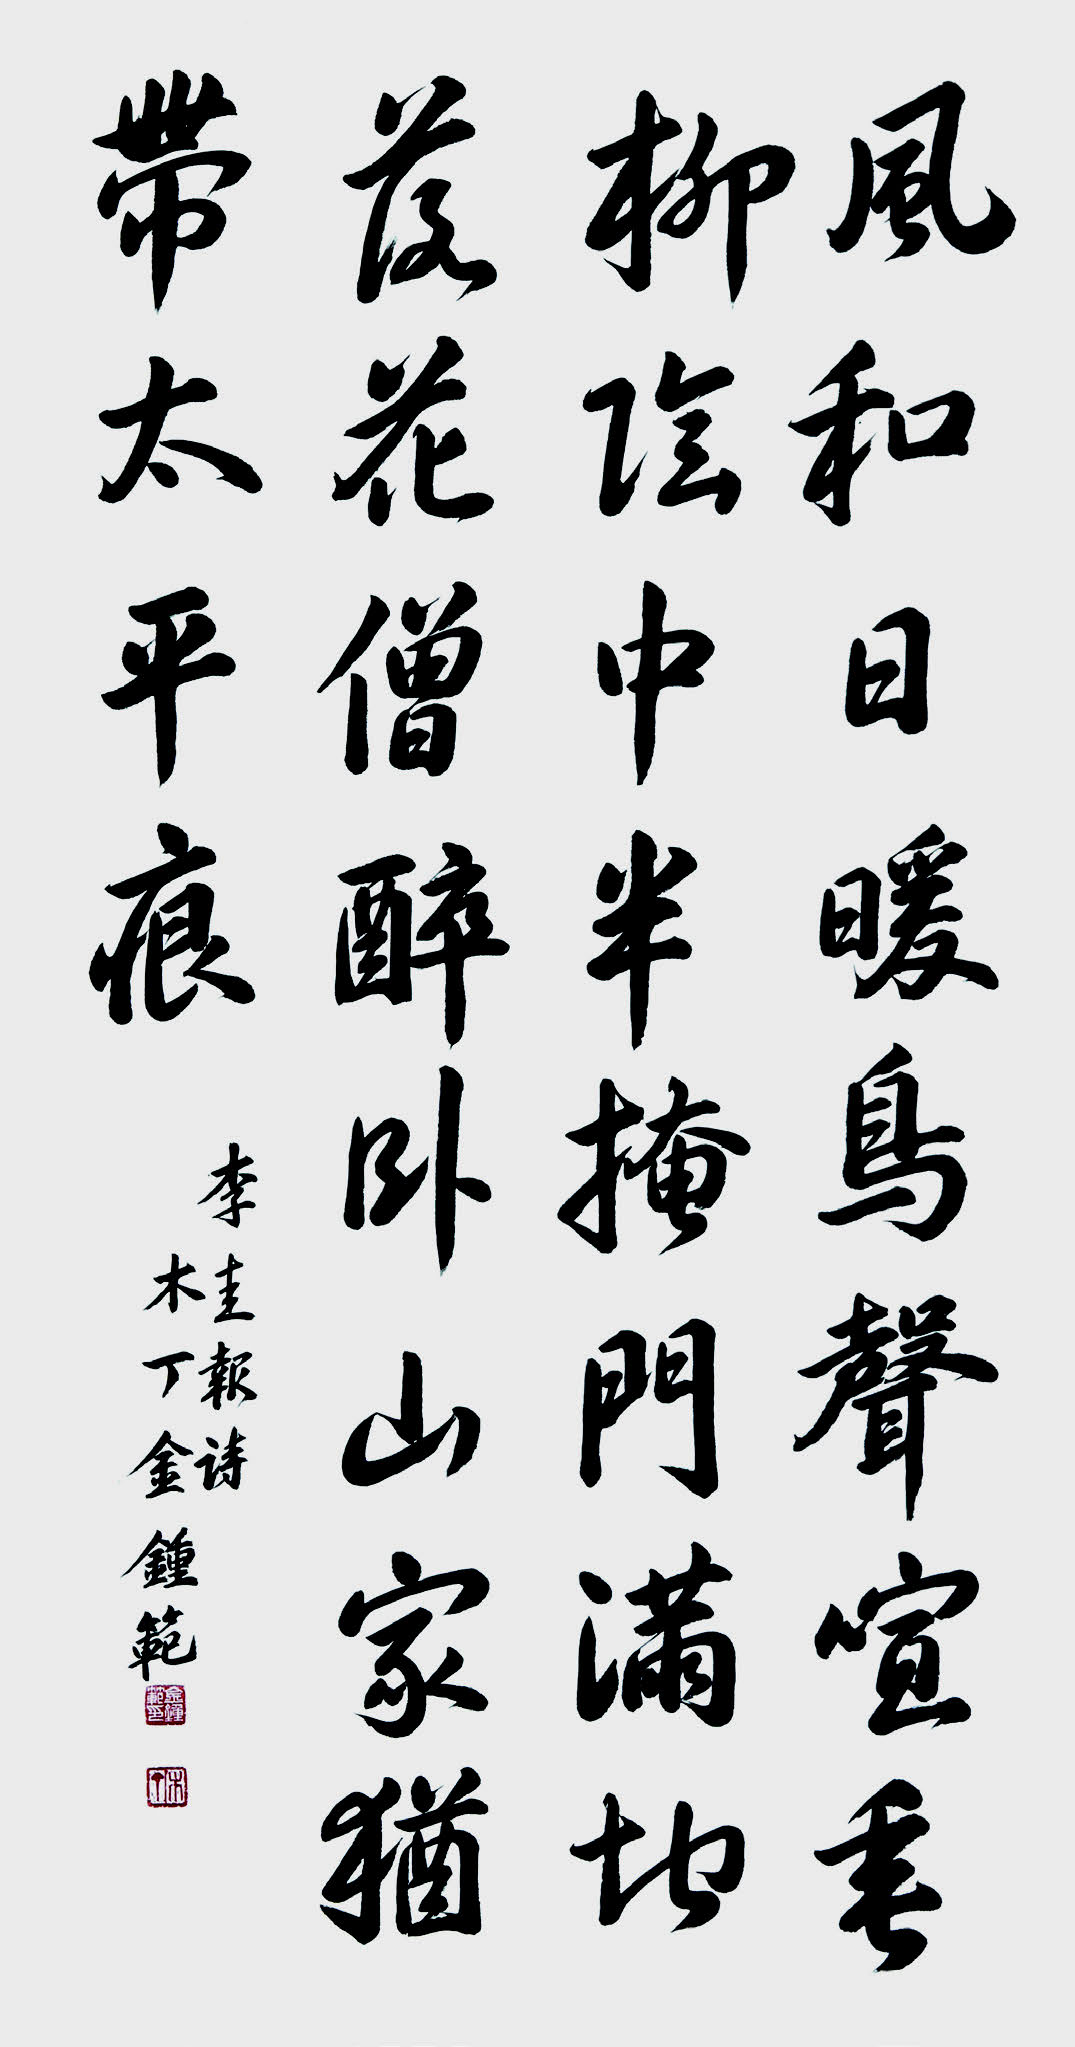 風和日暖鳥聲喧垂
柳陰中半掩門滿地
落花僧醉卧山家猶
帶太平痕
李圭報诗
木丁金鍾範
金鍾範印
木丁